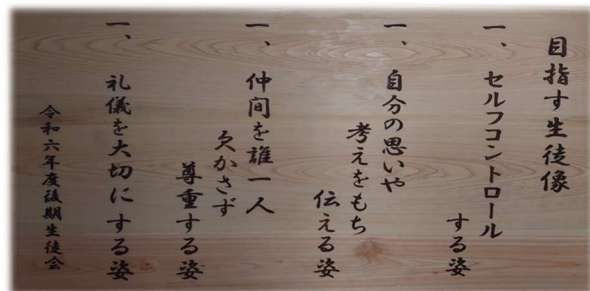 目指す生徒像
一、セルフコントロール
する姿
一、自分の思いや
考えをもち
伝える姿
一、仲間を誰一人
欠かさず
尊重する姿
一、礼儀を大切にする姿
令和六年度後期生徒会